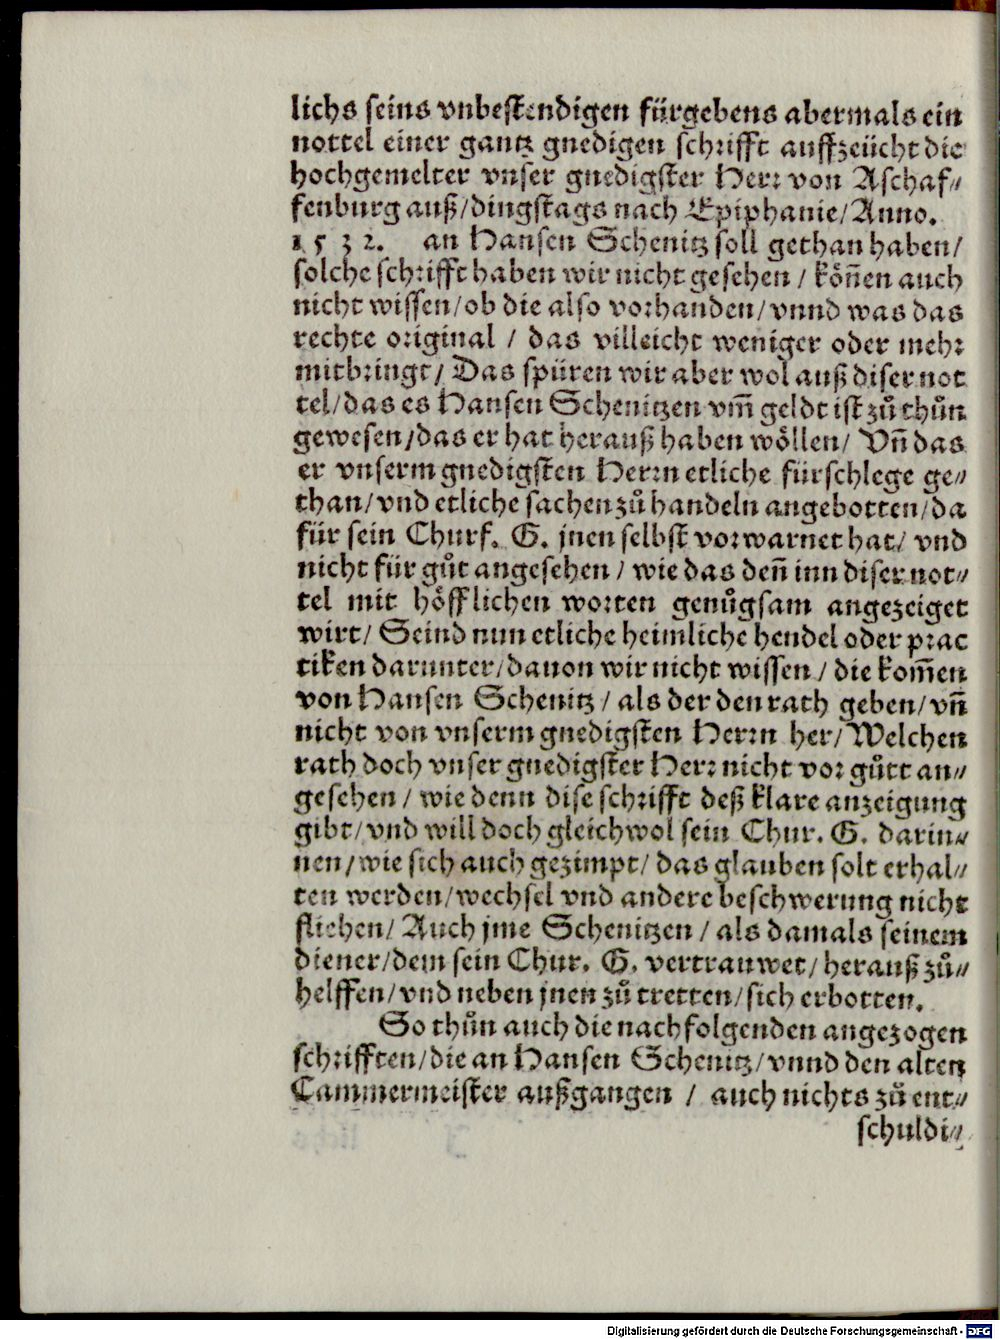 lichs seins vnbestendigen fürgebens abermals ein
nottel einer gantz gnedigen schrifft auffzeücht die
hochgemelter vnser gnedigster Herr von Aschaf⸗
fenburg auß/dingstags nach Epiphanie/Anno.
1532. an Hansen Schenitz soll gethan haben/
solche schrifft haben wir nicht gesehen / köñen auch
nicht wissen/ob die also vorhanden/vnnd was das
rechte original / das villeicht weniger oder mehr
mitbringt/ Das spüren wir aber wol auß diser not
tel/das es Hansen Schenitzen vm̃ geldt ist zů thůn
gewesen/das er hat herauß haben wöllen/ Vñ das
er vnserm gnedigsten Herrn etliche fürschlege ge⸗
than/vnd etliche sachen zů handeln angebotten/da
für sein Churf. G. jnen selbst vorwarnet hat/ vnd
nicht für gůt angesehen / wie das deñ inn diser not⸗
tel mit höfflichen worten genůgsam angezeiget
wirt/ Seind nun etliche heimliche hendel oder prac
tiken darunter/dauon wir nicht wissen / die kom̃en
von Hansen Schenitz / als der den rath geben/vñ
nicht von vnserm gnedigsten Herrn her/Welchen
rath doch vnser gnedigster Herr nicht vor gůtt an⸗
gesehen / wie denn dise schrifft deß klare anzeigung
gibt/vnd will doch gleichwol sein Chur. G. darin⸗
nen/wie sich auch gezimpt/ das glauben solt erhal⸗
ten werden/wechsel vnd andere beschwerung nicht
fliehen/ Auch jme Schenitzen / als damals seinem
diener/dem sein Chur. G. vertrauwet/herauß zů⸗
helffen/vnd neben jnen zů tretten/sich erbotten.
So thůn auch die nachfolgenden angezogen
schrifften/die an Hansen Schenitz/vnnd den alten
Cammermeister außgangen / auch nichts zů ent⸗
schuldi⸗
Digitalisierung gefördert durch die Deutsche Forschungsgemeinschaft - DFG